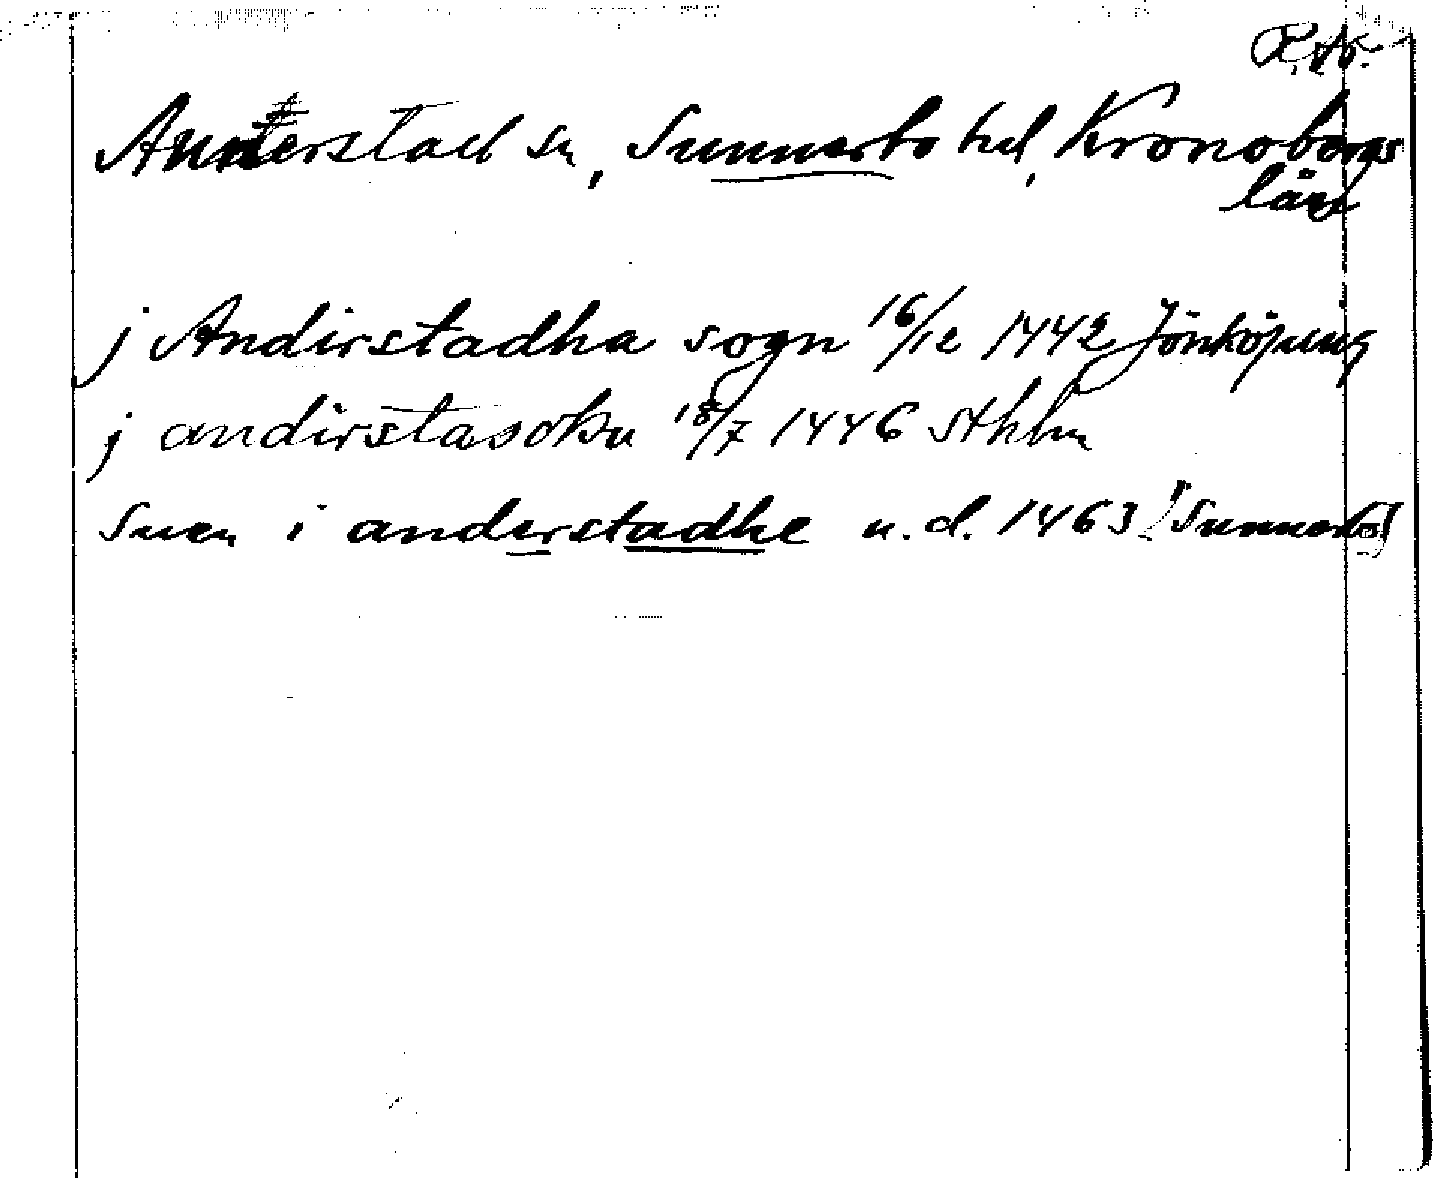 R.A.
Annerstad sn, Sunnerbo hd, Kronobergs
län
j Andirstadha sogn 16/12 1442 Jönköpung
j andirstasokn 18/7 1446 Sthlm
Suen i anderstadhe u.d. 1463 [Sunnerbo]